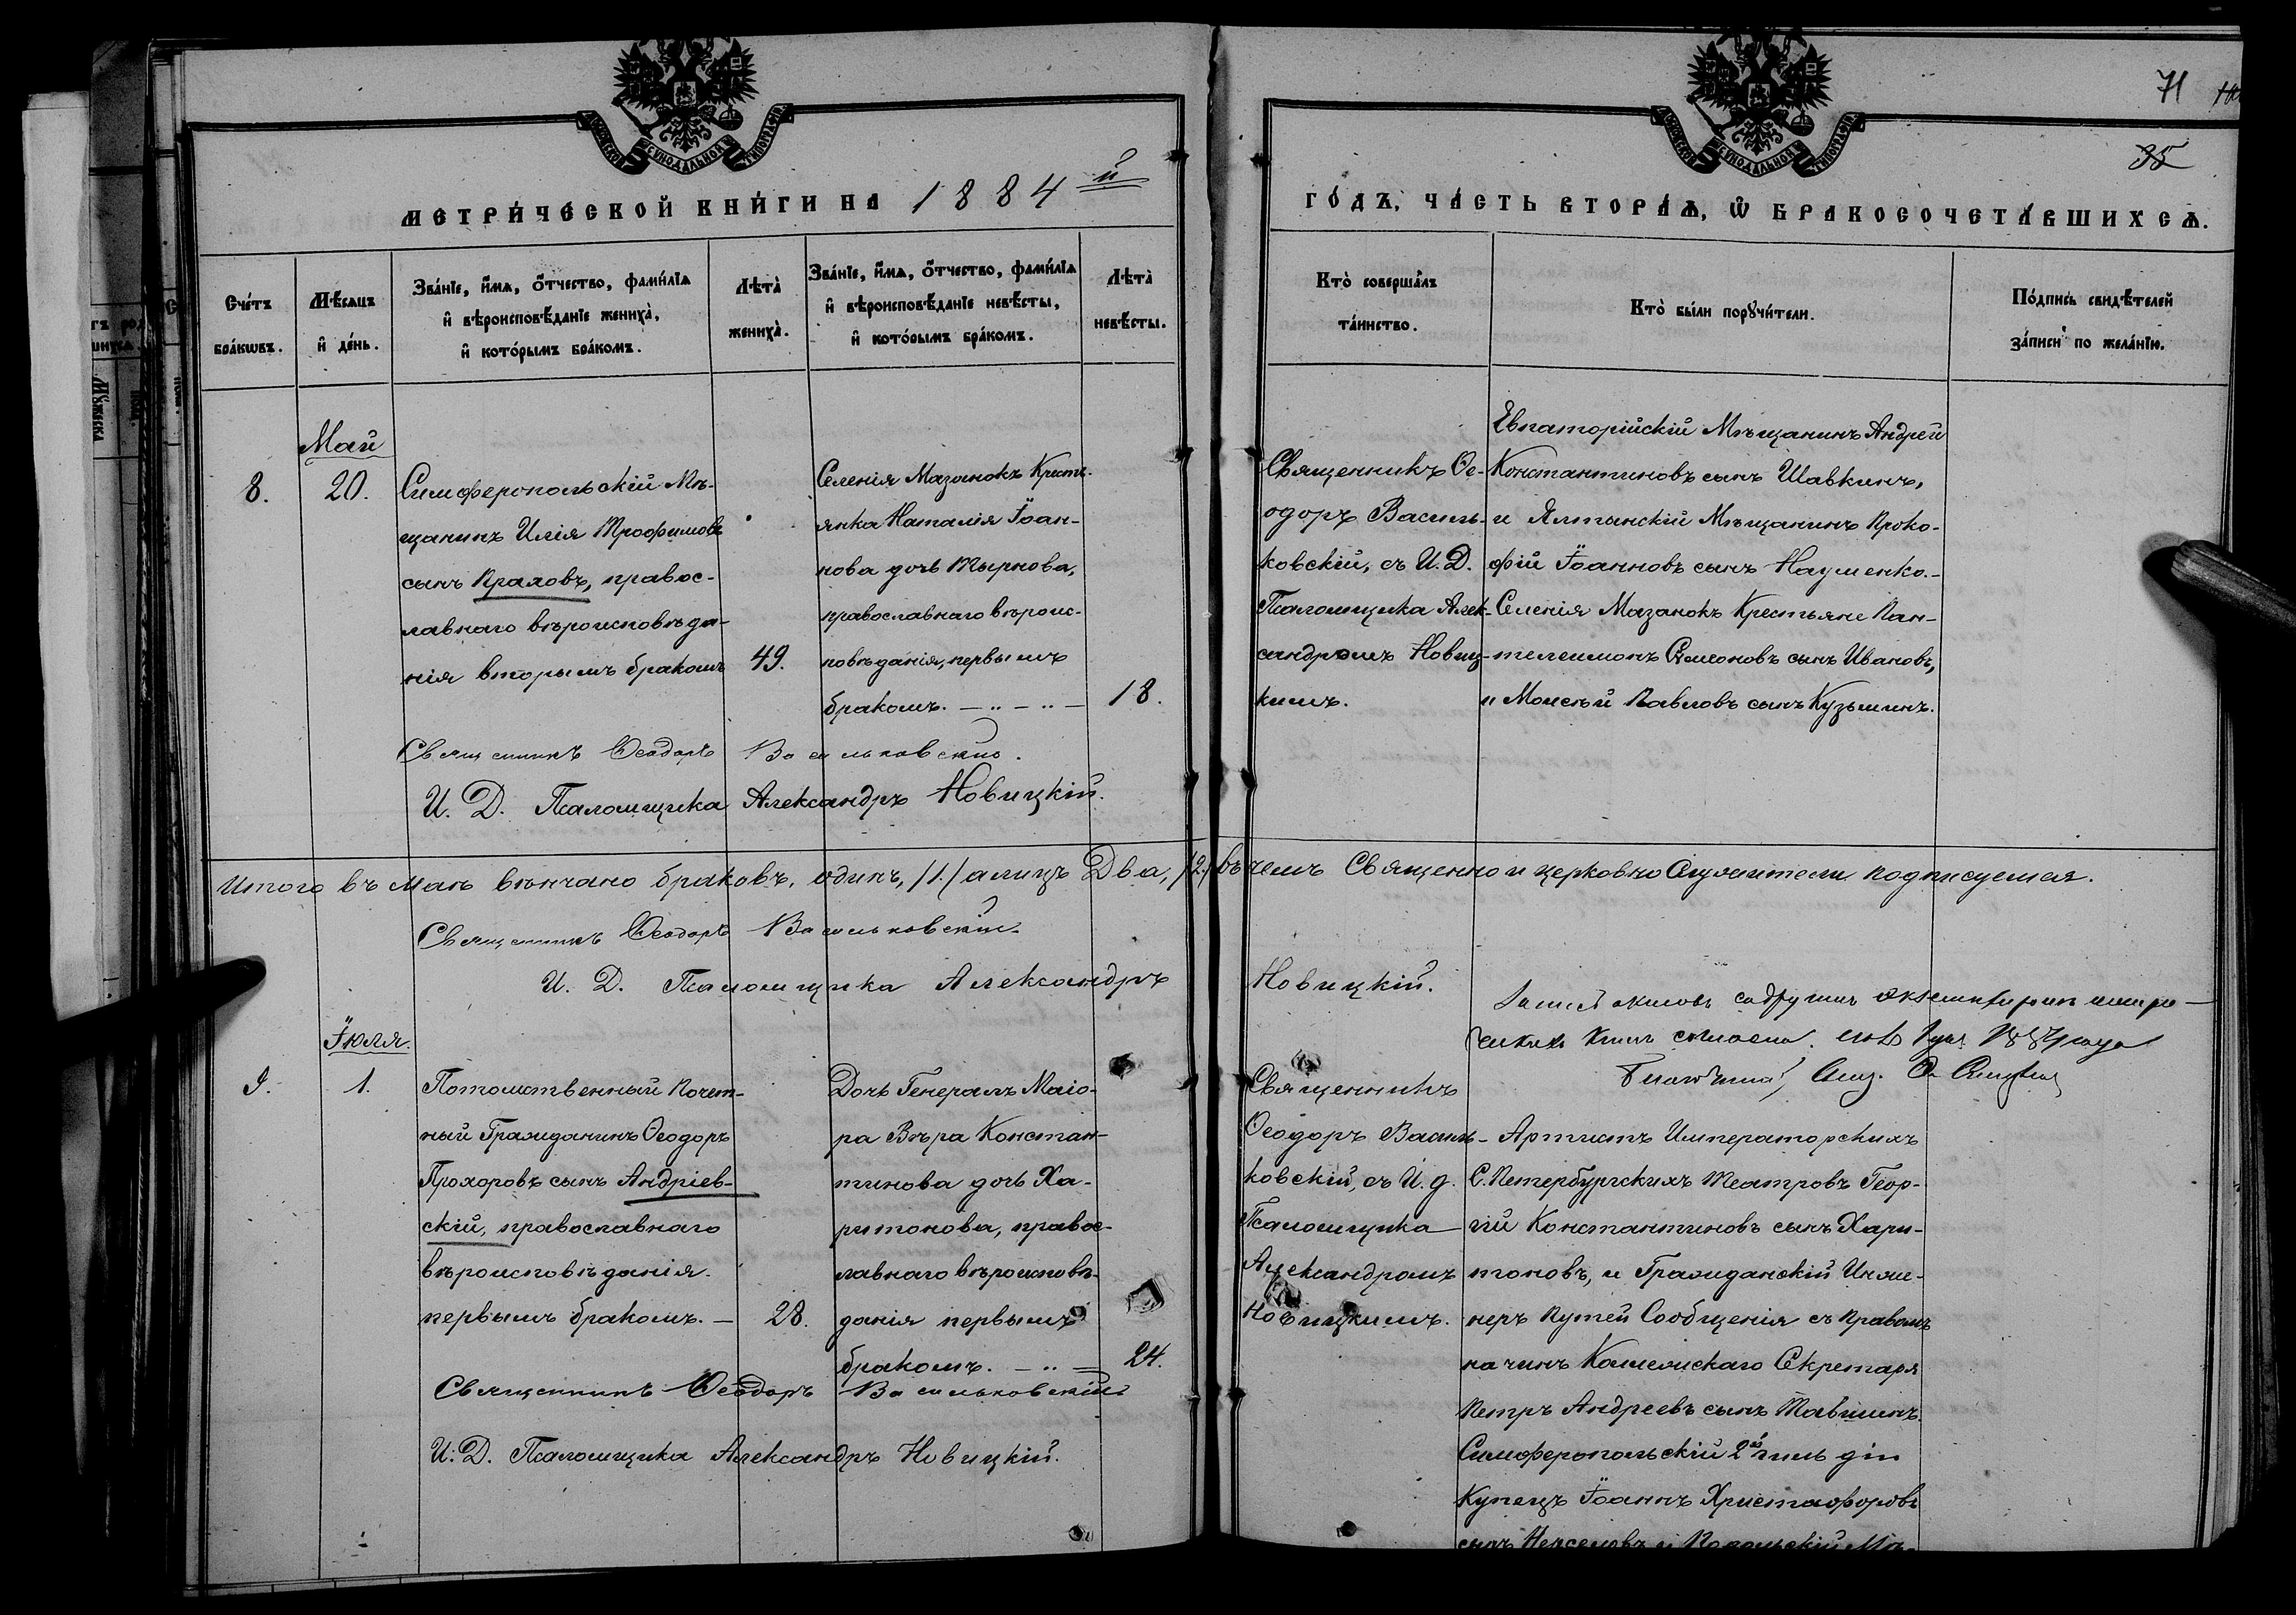 71
35
МЕТРИЧЕСКОЙ КНИГИ НА 1884й
ГОДЪ, ЧАСТЬ ВТОРАѦ, Ѿ БРАКОСОЧЕТАВШИХСѦ.
Счетъ браковъ.
Мѣсяцъ и день.
Званіе, имя, отчество, фамилія
и вѣроисповѣданіе жениха,
и которымъ бракомъ.
Лѣта жениха.
Званіе, имя, отчество, фамилія
и вѣроисповѣданіе невѣсты,
и которымъ бракомъ.
Лѣта невѣсты.
Кто совершалъ таинство.
Кто были поручители.
Подпись свидѣтелей
записи по желанію.
Май
8.
20.
Симферопольскій Мѣ-
щанинъ Илія Трофимовъ
сынъ Краловъ, правос-
лавнаго вѣроисповѣда-
нія вторымъ бракомъ
49.
Селенія Мазанокъ Кресть-
янка Наталія Іоан-
нова дочь Тырнова,
православнаго вѣроис-
повѣданія, первымъ
бракомъ.
18.
Священникъ Ѳе-
одоръ Василь-
ковскій, съ И. Д.
Псаломщика Алек-
сандромъ Новиц-
кимъ.
Евпаторійскій Мѣщанинъ Андрей
Константиновъ сынъ Шавкинъ,
и Ялтинскій Мѣщанинъ Проко-
фій Іоанновъ сынъ Науменко.-
Селенія Мазанокъ Крестьяне Пан-
телеимонъ Симоновъ сынъ Ивановъ,
и Моисѣй Павловъ сынъ Кузьминъ.
Священникъ Ѳеодоръ Васильковскій.
И. Д. Псаломщика Александръ Новицкій.
Итого въ маѣ вѣнчано браковъ, одинъ, /1./ а лицъ Два, /2./ въ чемъ Священно и церковно Служители подписуемся.
Священникъ Ѳеодоръ Васильковскій.
И. Д. Псаломщика Александръ Новицкій.
Іюля.
9.
1.
Потомственный Почет-
ный Гражданинъ Ѳеодоръ
Прохоровъ сынъ Андріев-
скій, православнаго
вѣроисповѣданія.
первымъ бракомъ. —
28.
Дочь Генералъ Маіо-
ра Вѣра Констан-
тинова дочь Ха-
ритонова, правос-
лавнаго вѣроисповѣ-
данія первымъ
бракомъ.
24.
Священникъ
Ѳеодоръ Василь-
ковскій, съ И. д.
Псаломщика
Александромъ
Новицкимъ.
Артистъ Императорскихъ
С. Петербургскихъ Театровъ Геор-
гій Константиновъ сынъ Хари-
тоновъ, и Гражданскій Инже-
неръ Путей Сообщенія съ правомъ
на чинъ Коллежскаго Секретаря
Петръ Андреевъ сынъ Тавилинъ.
Симферопольскій 2й гильдіи
Купецъ Іоаннъ Христофоровъ
Священникъ Ѳеодоръ Васильковскій
И. Д. Псаломщика Александръ Новицкій.